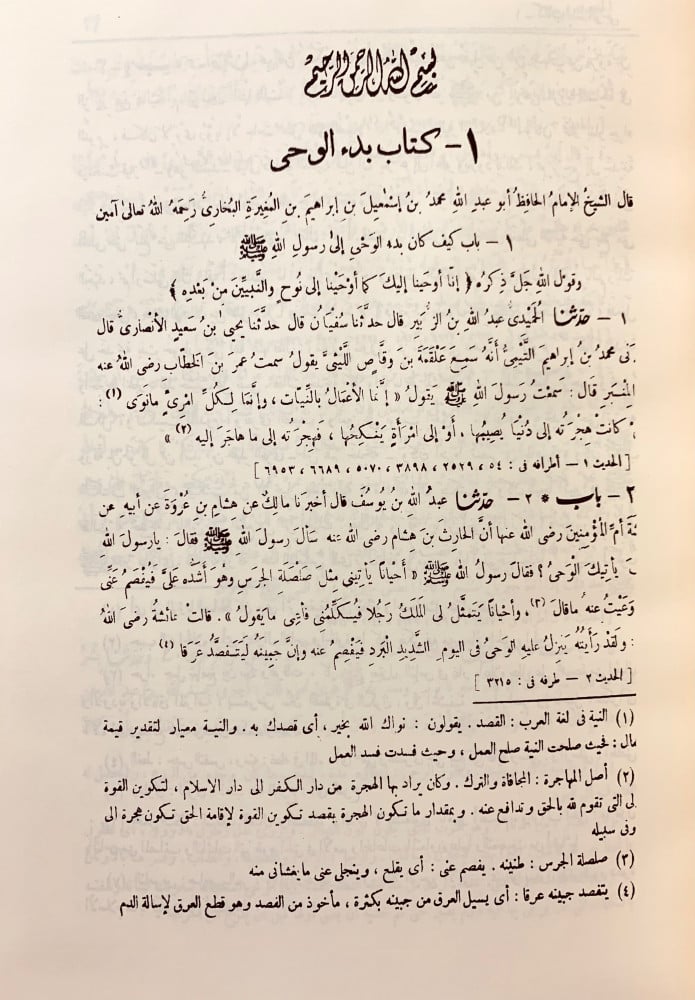 بسم الله الرحمن الرحيم
١ - كتاب بدء الوحى
قال الشيخُ الإمامُ الحافِظُ أبو عبدِ اللهِ محمدُ بنُ إسْمٰعيلَ بنِ إبراهيمَ بنِ المُغيرةِ البُخارىُّ رَحمَهُ اللهُ تعالىٰ آمين
١ - باب كيف كان بدء الوَحْىِ إلىٰ رسولِ اللهِ ﷺ
وقولُ اللهِ جَلَّ ذِكرُه ﴿ إنّا أوحَينا إليكَ كما أوْحَيْنا إلى نُوحٍ والنَّبيِّينَ مِنْ بَعْدِه ﴾
١ - حدّثنا الحُمَيدىُّ عبدُ اللهِ بنُ الزُّبَيرِ قال حدثَنا سُفيانُ قال حدثَنا يحيىٰ بنُ سَعيدٍ الأنصارىُّ قال
نى محمدُ بنُ إبراهيمَ التَّيمِىُّ أنَّهُ سَمِعَ عَلْقَمةَ بنَ وقَّاصٍ اللَّيْثىَّ يقولُ سمعتُ عمرَ بنَ الخطّابِ رضى اللهُ عنه
المِنْبَرِ قال : سَمِعْتُ رَسولَ اللهِ ﷺ يَقولُ « إنَّما الأعْمالُ بالنِّيّاتِ ، وإنَّمَا لِكُلِّ امْرِئٍ مانَوَى (١) :
كانتْ هِجْرَتُه إلى دُنْيَا يُصِيبُها ، أوْ إلى امْرَأةٍ يَنْكِحُها ، فَهِجْرَتُه إلى ما هاجَرَ إليه (٢) »
[ الحديث ١ - أطرافه فى : ٥٤ ، ٢٥٢٩ ، ٣٨٩٨ ، ٥٠٧٠ ، ٦٦٨٩ ، ٦٩٥٣ ]
٢ - باب * ٢ - حدّثنا عبدُ اللهِ بنُ يُوسُفَ قال أخبرَنا مالِكٌ عن هِشامِ بنِ عُرْوَةَ عن أبيهِ عن
ةَ أمِّ المُؤْمِنِينَ رضى الله عنها أنَّ الحارِثَ بنَ هشامٍ رضى الله عنه سَألَ رسولَ اللهِ ﷺ فقَالَ : يارسولَ اللهِ
يأتِيكَ الوَحْىُ ؟ فقالَ رسولُ اللهِ ﷺ « أحْياناً يأتِينى مِثلَ صَلْصَلةِ الجَرَسِ وهُوَ أشَدُّه عَلَىَّ فَيُفْصَمُ عَنِّى
وَعَيْتُ عنهُ ماقالَ (٣) ، وأحْياناً يَتمثَّلُ لىَ المَلَكُ رَجُلا فيُكلِّمُنى فأعِى مايقولُ » . قالتْ عائشةُ رضىَ اللهُ
: ولَقَدْ رَأيْتُه يَنزِلُ عليهِ الوَحىُ فى اليومِ الشَّديدِ البَرْدِ فيَفْصِمُ عنه وإنَّ جَبِينَهُ لَيَتَفصَّدُ عَرَقا (٤)
[ الحديث ٢ - طرفه فى : ٣٢١٥ ]
(١) النية فى لغة العرب : القصد . يقولون : نواك الله بخير ، أى قصدك به . والنية معيار لتقدير قيمة
مال : فحيث صلحت النية صلح العمل ، وحيث فسدت فسد العمل
(٢) أصل المهاجرة : المجافاة والترك . وكان يراد بها الهجرة من دار الكفر الى دار الاسلام ، لتكوين القوة
لى التى تقوم لله بالحق وتدافع عنه . وبمقدار ما تكون الهجرة بقصد تكوين القوة لإقامة الحق تكون هجرة الى
وفى سبيله
(٣) صلصلة الجرس : طنينه . يفصم عنى : أى يقلع ، وينجلى عنى مايغشانى منه
(٤) يتفصد جبينه عرقا : أى يسيل العرق من جبينه بكثرة ، مأخوذ من الفصد وهو قطع العرق لإسالة الدم